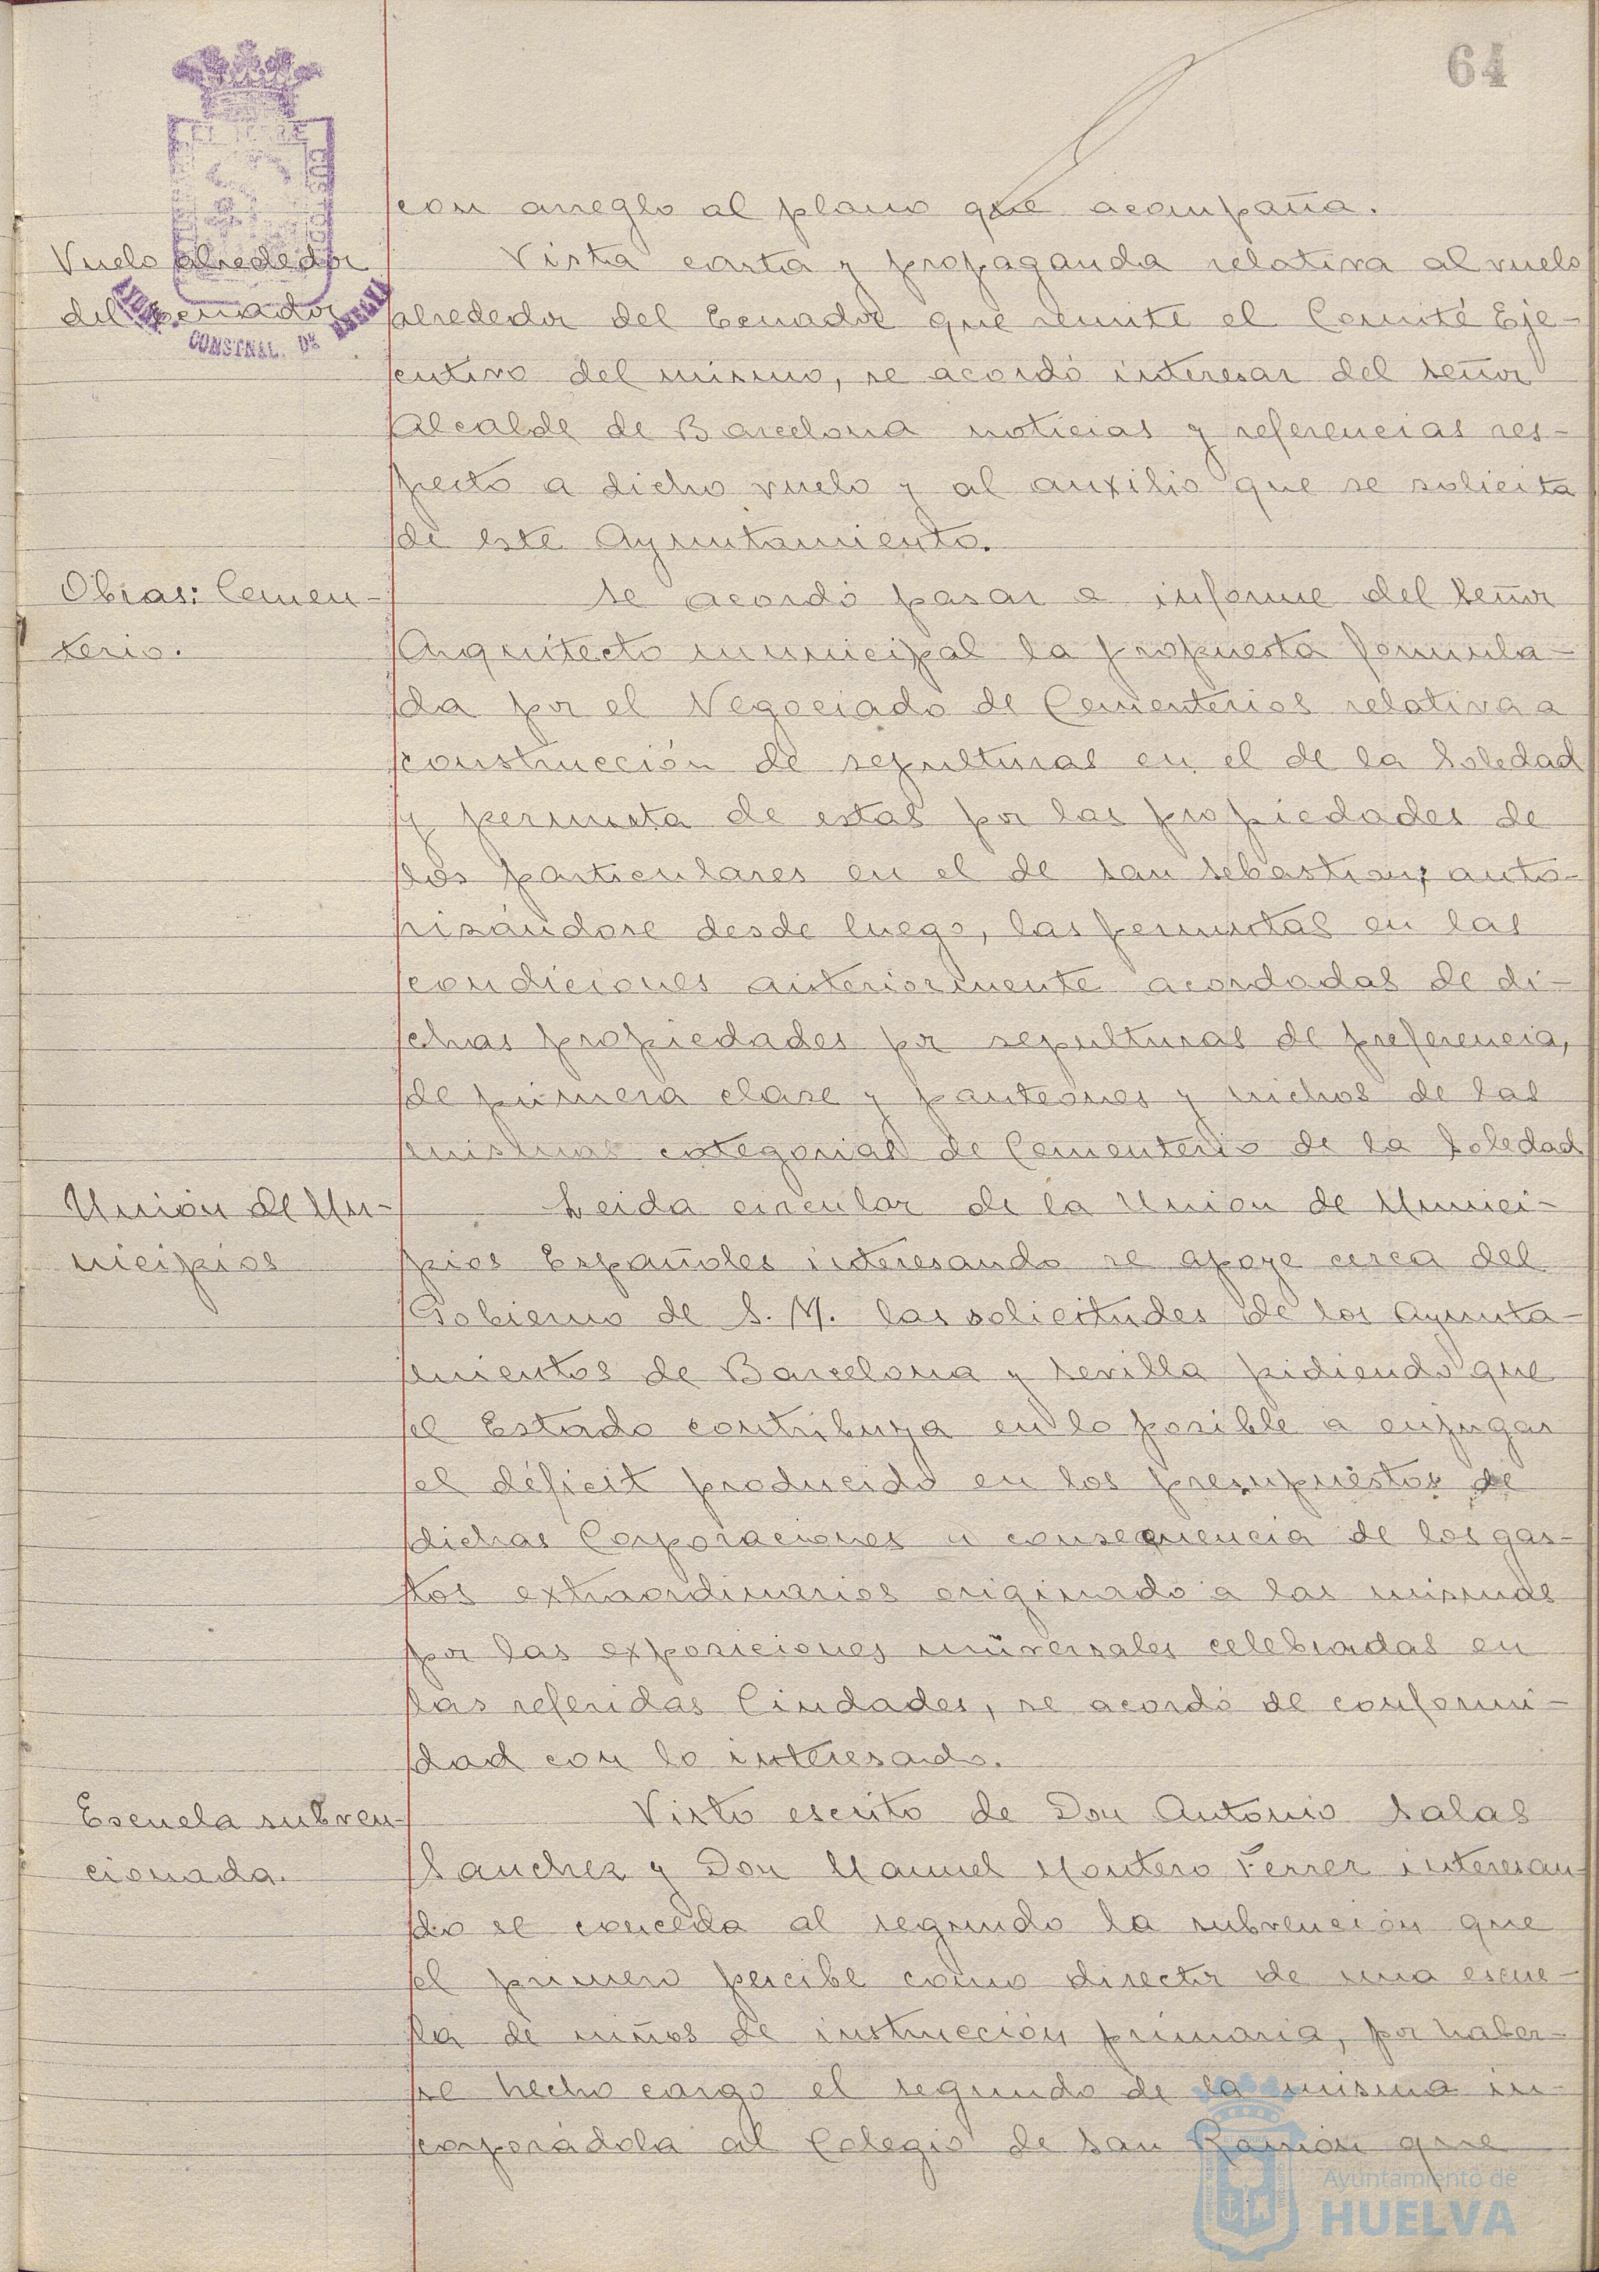 64
con arreglo al plano que acompaña.
Vuelo alrededor
del Ecuador
Vista carta y propaganda relativa al vuelo
alrededor del Ecuador que remite el Comité Eje-
cutivo del mismo, se acordó interesar del Señor
Alcalde de Barcelona noticias y referencias res-
pecto a dicho vuelo y al auxilio que se solicita
de este Ayuntamiento.
Obras: Cemen-
terio.
Se acordó pasar a informe del Señor
Arquitecto municipal la propuesta formula-
da por el Negociado de Cementerios relativa a
construcción de sepulturas en el de la Soledad
y permuta de estas por las propiedades de
los particulares en el de San Sebastian; auto-
rizándose desde luego, las permutas en las
condiciones anteriormente acordadas de di-
chas propiedades por sepulturas de preferencia,
de primera clase y panteones y nichos de las
mismas categorias de Cementerio de la Soledad
Unión de Mu-
nicipios
Leida circular de la Union de Munici-
pios Españoles interesando se apoye cerca del
Gobierno de S. M. las solicitudes de los Ayunta-
mientos de Barcelona y Sevilla pidiendo que
el Estado contribuya en lo posible a enjugar
el déficit producido en los presupuestos de
dichas Corporaciones a consecuencia de los gas-
tos extraordinarios originado a las mismas
por las exposiciones universales celebradas en
las referidas Ciudades, se acordó de conformi-
dad con lo interesado.
Escuela subven-
cionada.
Visto escrito de Don Antonio Salas
Sanchez y Don Manuel Montero Ferrer interesan-
do se conceda al segundo la subvención que
el primero percibe como director de una escue-
la de niños de instrucción primaria, por haber-
se hecho cargo el segundo de la misma in-
corporádola al Colegio de San Ramón que
AYUNT. CONSTNAL. DE HUELVA
Ayuntamiento de
HUELVA